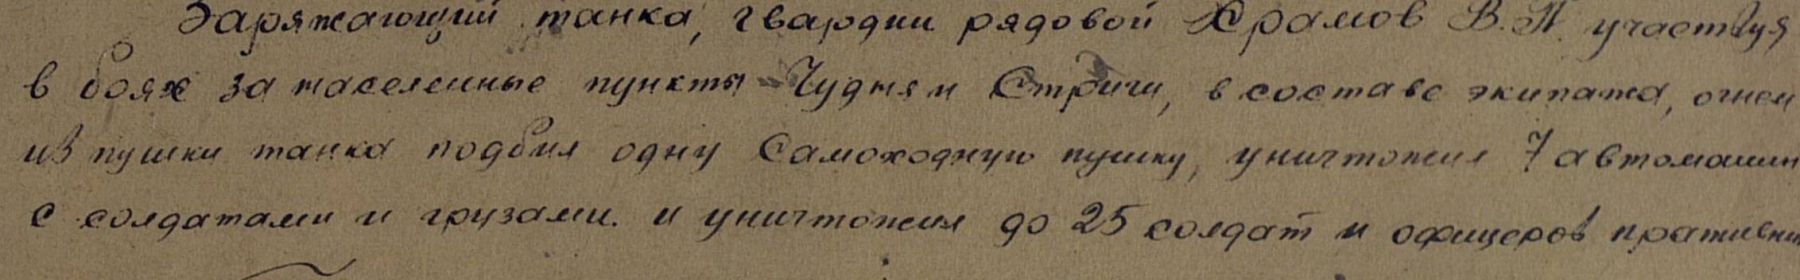 Заряжающий танка, гвардии рядовой Храмов В.П. участвуя
в боях за населенные пункты Чуднян Стриги, в составе экипажа, огнем
из пушки танка подбил одну самоходную пушку, уничтожил 7 автомашин
с солдатами и грузами. и уничтожил до 25 солдат и офицеров противни